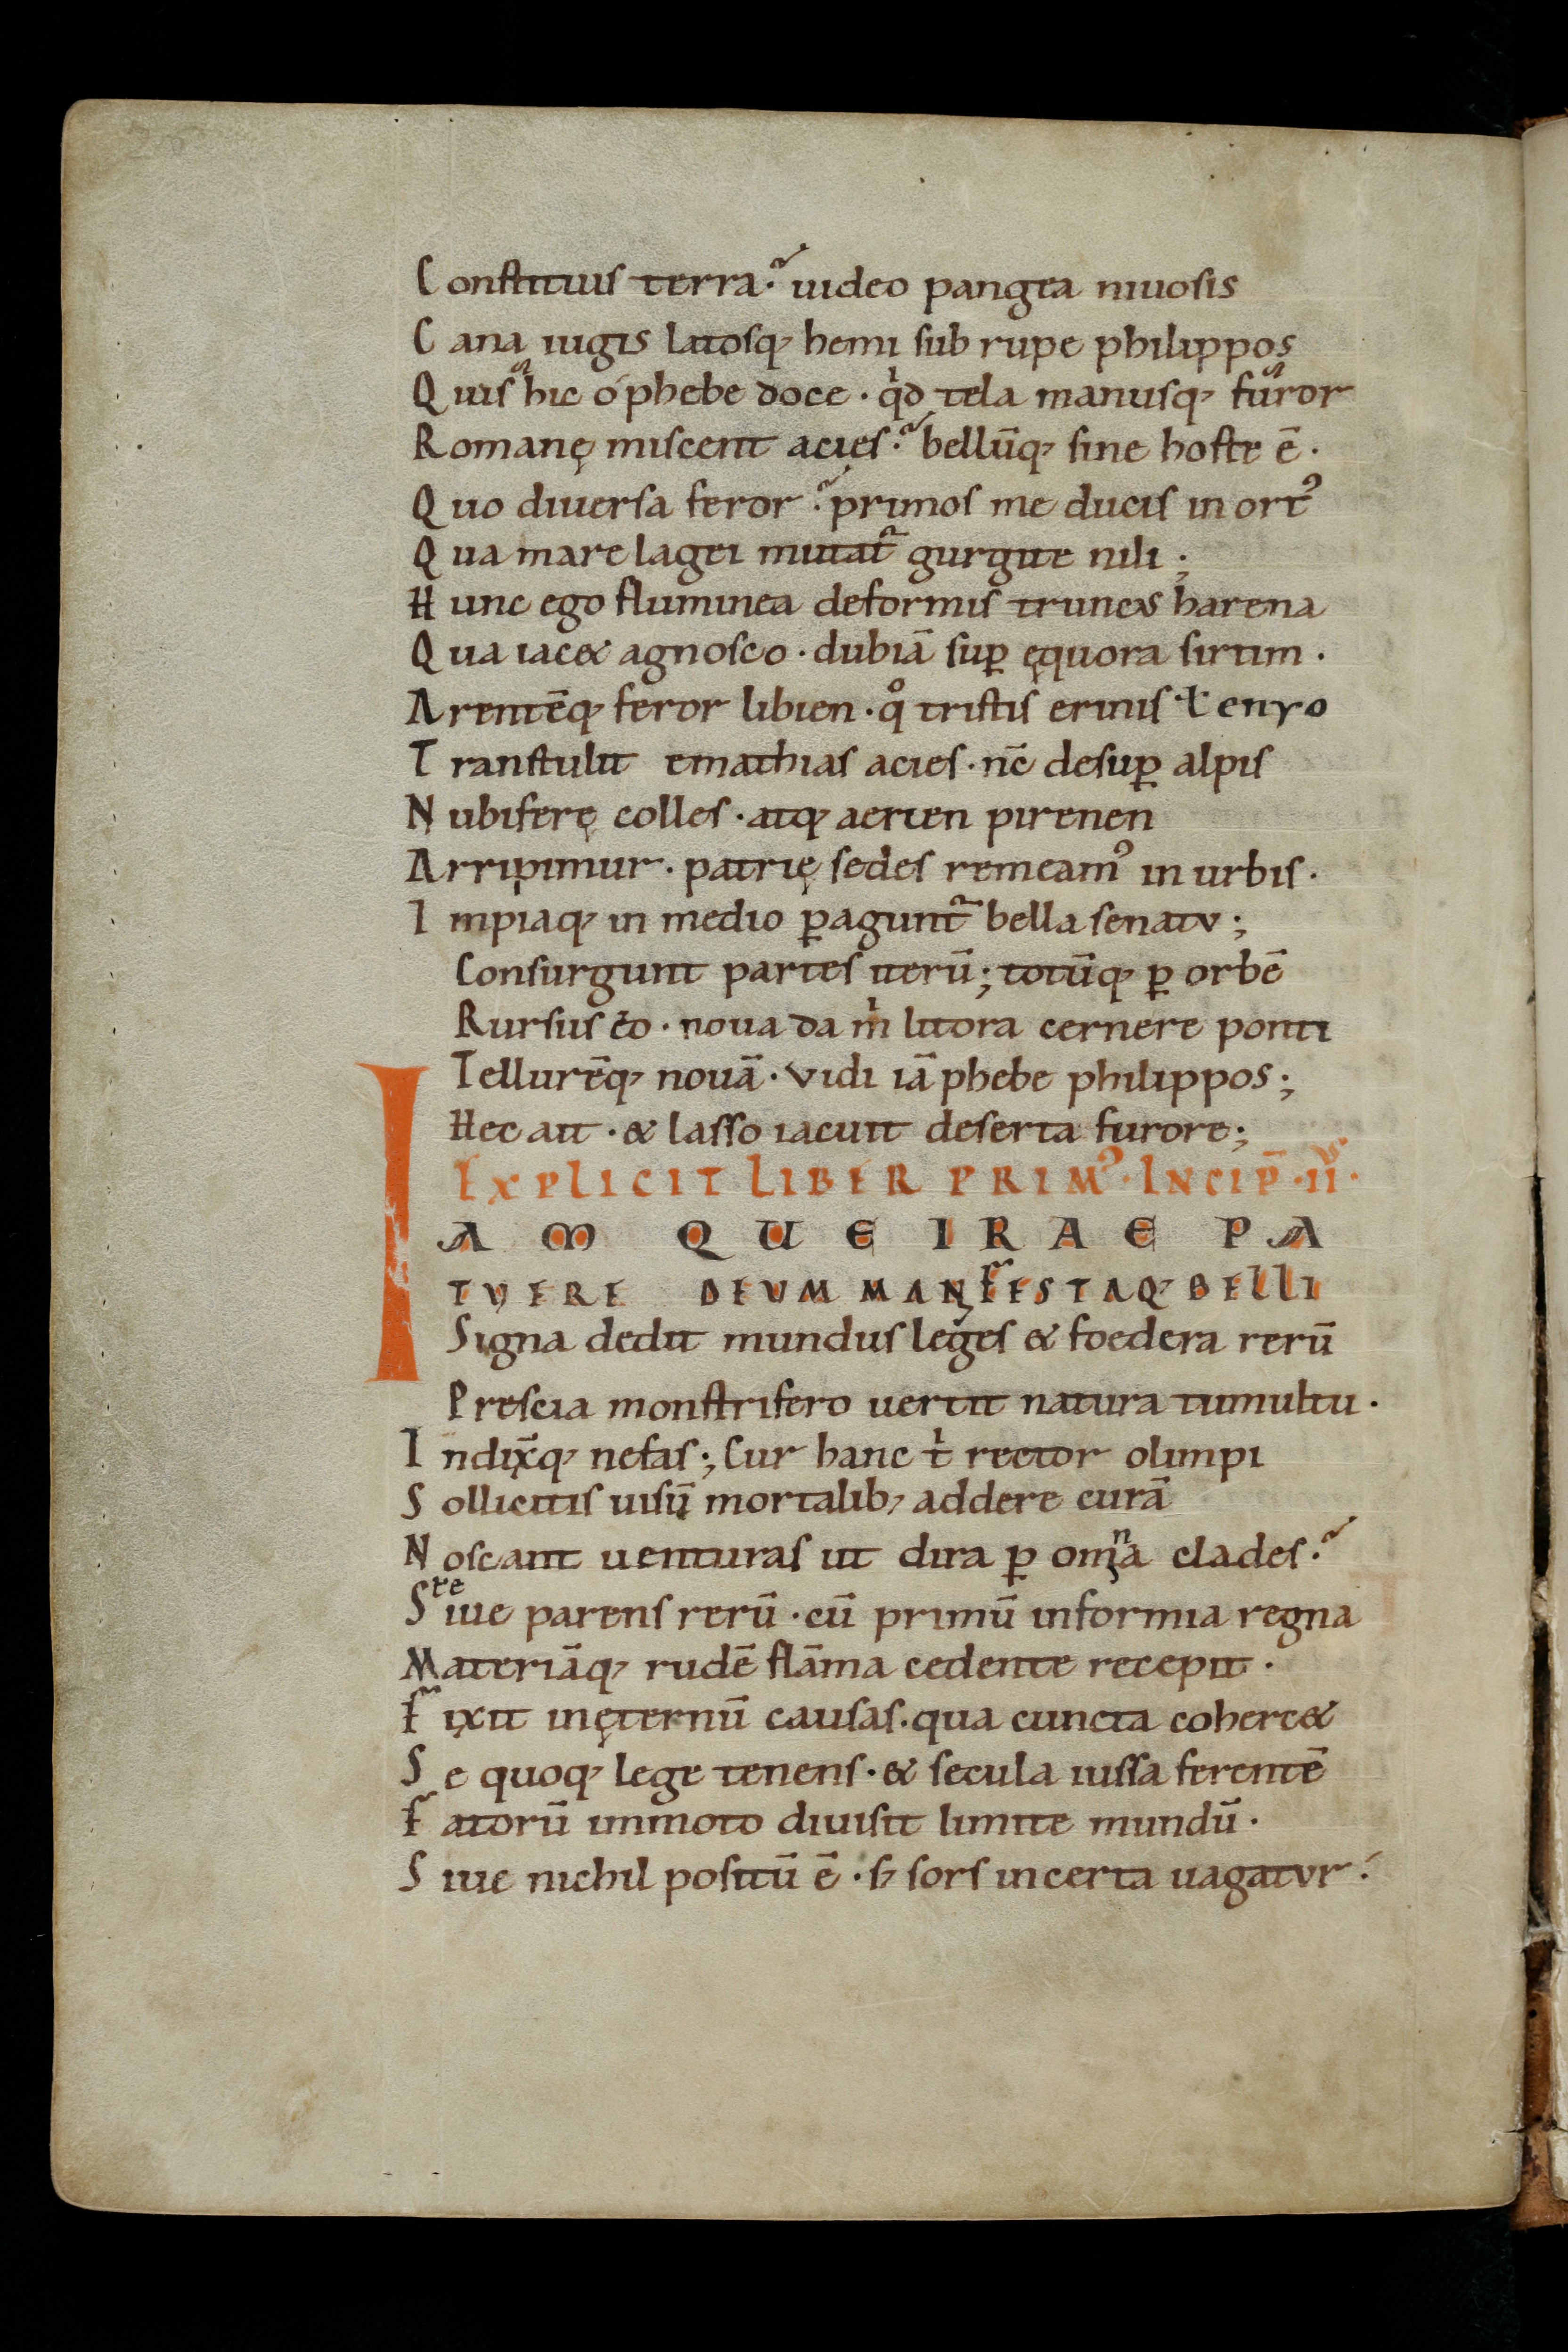 Constituis terra. uideo pangea niuosis
Cana iugis latosq; hemi sub rupe philippos
Quis hic o phebe doce · qͥd tela manusq; furor
Romanę miscent acies. bellūq; sine hoste ē ·
Quo diuersa feror. primos me ducis in ortꝰ
Qua mare lagei mutat᷑ gurgite nili ;
Hunc ego fluminea deformis truncus harena
Qua iacet agnosco · dubiā suꝑ ęquora sirtim ·
Arentēq; feror libien · qͦ tristis erinis · ł enyo
Transtulit emathias acies · nc̄ desuꝑ alpis
Nubiferę colles · atq; aerien pirenen
Arripimur · patrię sedes remeamꝰ in urbis ·
Impiaq; in medio ꝑagunt᷑ bella senatu ;
Consurgunt partes iterū ; totūq; ꝑ orbē
Rursus eo · noua da mͥ litora cernere ponti
Tellurēq; nouā · vidi iā phebe philippos ;
Hec ait · & lasso iacuit deserta furore ;
EXPLICIT LIBER PRIMꝰ · INCIP̄ · II ·
IAM QUE IRAE PA
TVERE DEVM MANIFESTAQ; BELLI
Signa dedit mundus leges & foedera rerū
Prescia monstrifero uertit natura tumultu ·
Indix̄q; nefas ; Cur hanc tͥ rector olimpi
Sollicitis uisū mortalib; addere curā
Noscant uenturas ut dira ꝑ omina clades.
Siue parens rerū · cū primū informia regna
Materiāq; rudē flāma cedente recepit ·
Fixit in ęternū causas · qua cuncta coherc&
Se quoq; lege tenens · & secula iussa ferentē
Fatorū immoto diuisit limite mundū ·
Siue nichil positū ē · s; sors incerta uagatur.